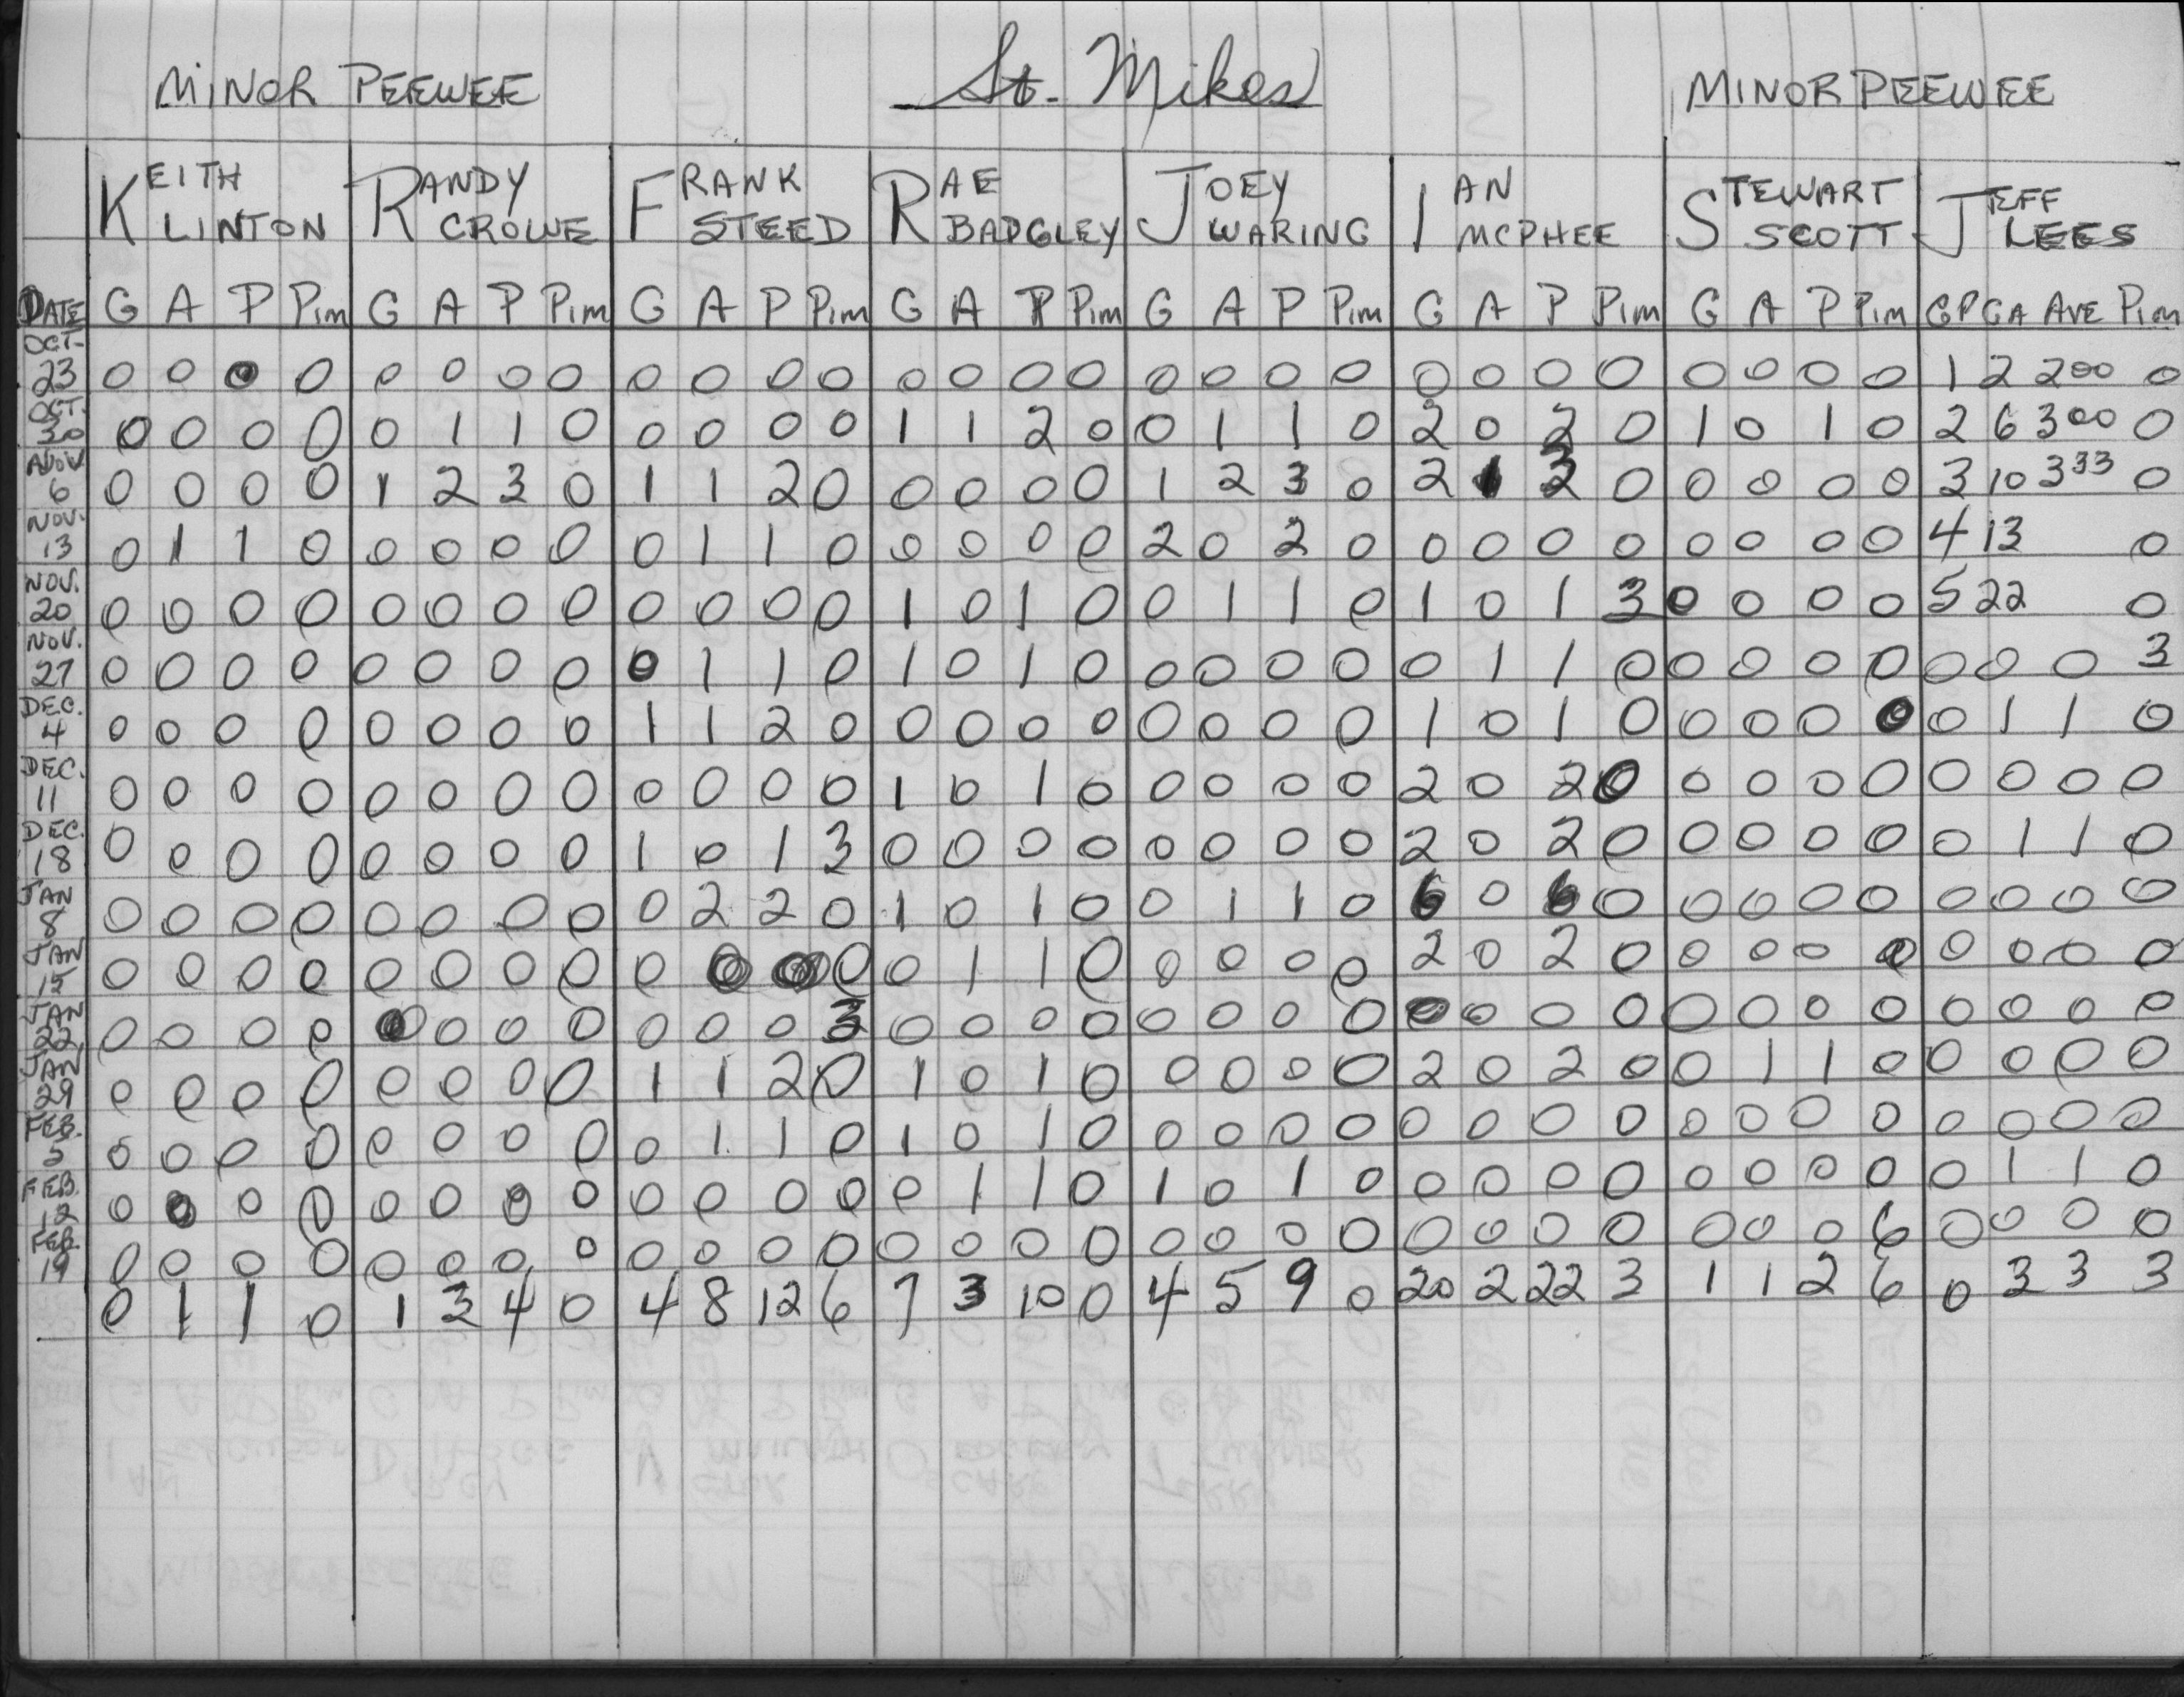 MINOR PEEWEE St. Mikes MINOR PEEWEE
KEITH LINTON RANDY CROWE FRANK STEED RAE BADGLEY JOEY WARING IAN MCPHEE STEWART SCOTT JEFF LEES
DATE G A P Pim G A P Pim G A P Pim G A P Pim G A P Pim G A P Pim G A P Pim GP GA AVE Pim
OCT. 23 0 0 0 0 0 0 0 0 0 0 0 0 0 0 0 0 0 0 0 0 0 0 0 0 0 0 0 0 1 2 2.00 0
OCT. 30 0 0 0 0 0 1 1 0 0 0 0 0 1 1 2 0 0 1 1 0 2 0 2 0 1 0 1 0 2 6 3.00 0
NOV. 6 0 0 0 0 1 2 3 0 1 1 2 0 0 0 0 0 1 2 3 0 2 1 3 0 0 0 0 0 3 10 3.33 0
NOV. 13 0 1 1 0 0 0 0 0 0 1 1 0 0 0 0 0 2 0 2 0 0 0 0 0 0 0 0 0 4 13 0
NOV. 20 0 0 0 0 0 0 0 0 0 0 0 0 1 0 1 0 0 1 1 0 1 0 1 3 0 0 0 0 5 22 0
NOV. 27 0 0 0 0 0 0 0 0 0 1 1 0 1 0 1 0 0 0 0 0 0 1 1 0 0 0 0 0 0 0 0 3
DEC. 4 0 0 0 0 0 0 0 0 1 1 2 0 0 0 0 0 0 0 0 0 1 0 1 0 0 0 0 0 0 1 1 0
DEC. 11 0 0 0 0 0 0 0 0 0 0 0 0 1 0 1 0 0 0 0 0 2 0 2 0 0 0 0 0 0 0 0 0
DEC. 18 0 0 0 0 0 0 0 0 1 0 1 3 0 0 0 0 0 0 0 0 2 0 2 0 0 0 0 0 0 1 1 0
JAN 8 0 0 0 0 0 0 0 0 0 2 2 0 1 0 1 0 0 1 1 0 6 0 6 0 0 0 0 0 0 0 0 0
JAN 15 0 0 0 0 0 0 0 0 0 0 0 0 0 1 1 0 0 0 0 0 2 0 2 0 0 0 0 0 0 0 0 0
JAN 22 0 0 0 0 0 0 0 0 0 0 0 3 0 0 0 0 0 0 0 0 0 0 0 0 0 0 0 0 0 0 0 0
JAN 29 0 0 0 0 0 0 0 0 1 1 2 0 1 0 1 0 0 0 0 0 2 0 2 0 0 1 1 0 0 0 0 0
FEB. 5 0 0 0 0 0 0 0 0 0 1 1 0 1 0 1 0 0 0 0 0 0 0 0 0 0 0 0 0 0 0 0 0
FEB. 12 0 0 0 0 0 0 0 0 0 0 0 0 0 1 1 0 1 0 1 0 0 0 0 0 0 0 0 0 0 1 1 0
FEB. 19 0 0 0 0 0 0 0 0 0 0 0 0 0 0 0 0 0 0 0 0 0 0 0 0 0 0 0 6 0 0 0 0
0 1 1 0 1 3 4 0 4 8 12 6 7 3 10 0 4 5 9 0 20 2 22 3 1 1 2 6 0 3 3 3